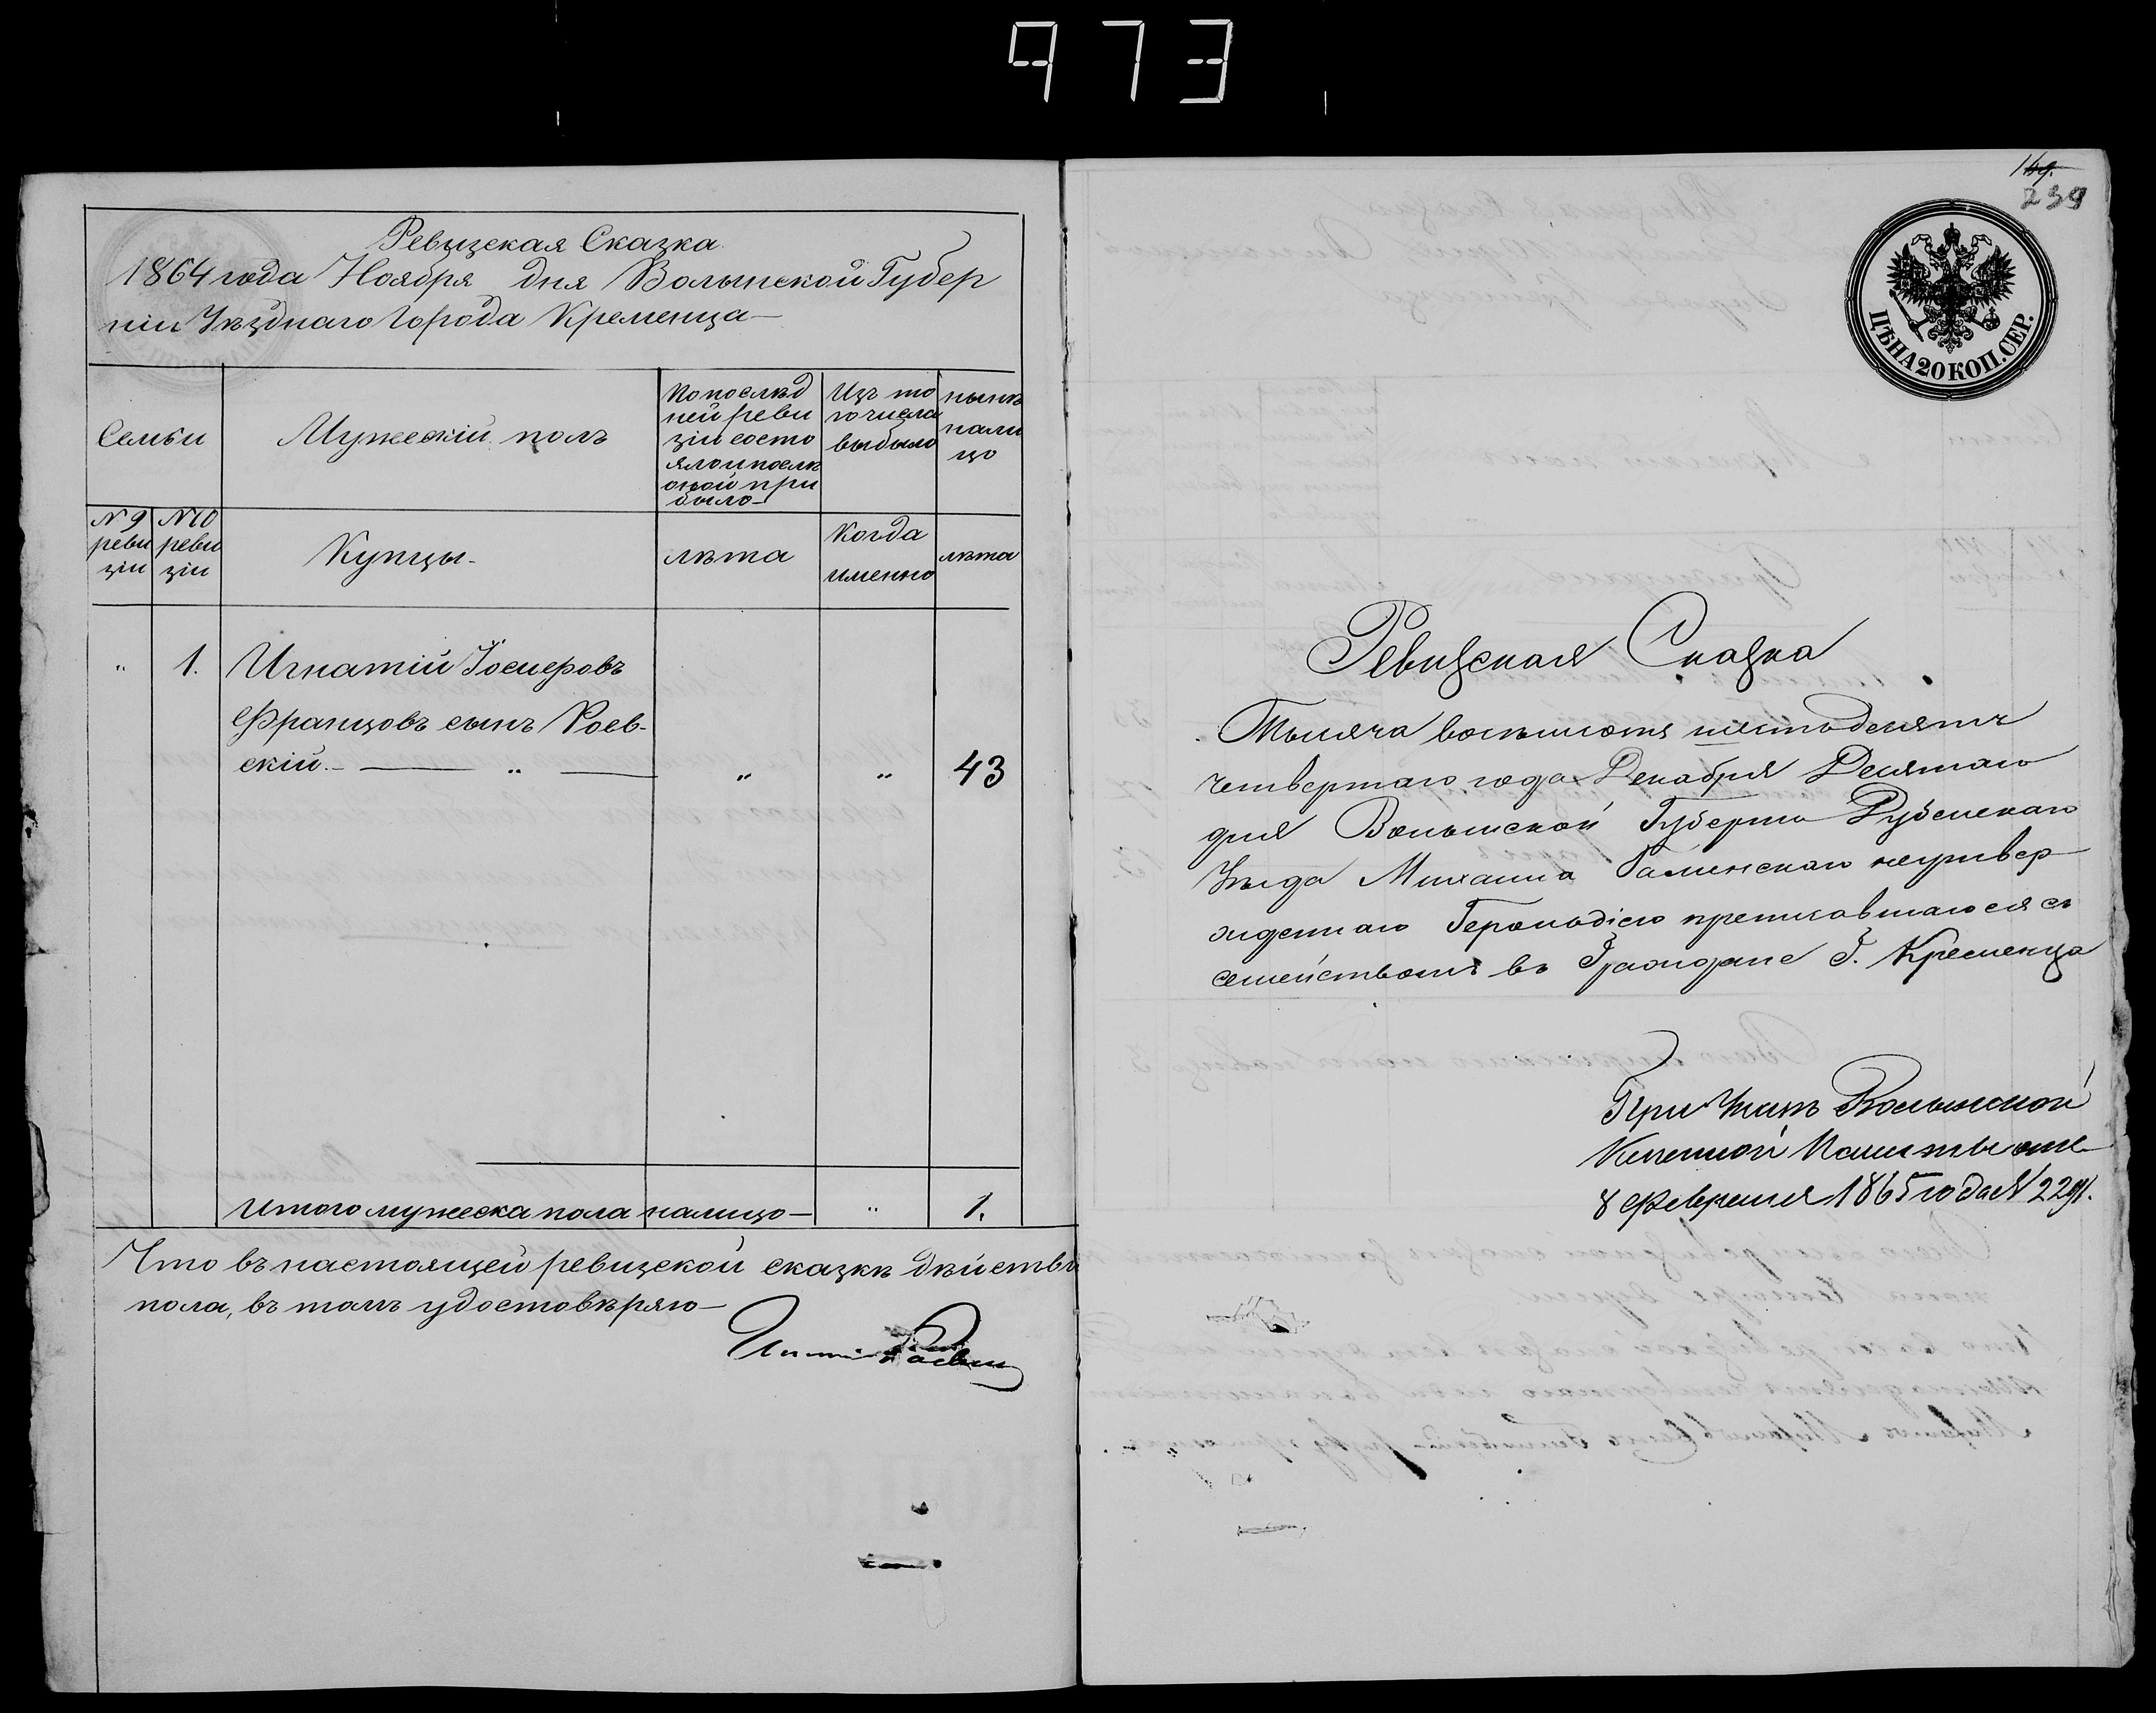 973
Ревизская Сказка
1864 года Ноября дня Волынской Губер
ніи Уѣзднаго Города Кременца
Семьи
Мужескій полъ
По послѣд
ней реви
зіи состо
яло и послѣ
оной при
было
Изъ то
го числа
выбыло
нынѣ
нали
цо
№ 9
реви
зіи
№ 10
реви
зіи
Купцы
лѣта
Когда
именно
лѣта
" 1. Игнатій Іосиеровъ
Францовъ сынъ Роев-
скій. " " " 43
Итого мужеска пола налицо " 1.
Что въ настоящей ревизской сказкѣ дѣйстви
пола, въ томъ удостовѣряю
169.
239
ЦѢНА 20 КОП. СЕР.
Ревизская Сказка
Тысяча восемьсотъ шестьдесятъ
четвертаго года Декабря Десятаго
дня Волынской Губерніи Дубенскаго
Уѣзда Михаила неутвер
жденнаго Герольдіею приписавшагося съ
семействомъ въ Граждане Г. Кременца
При Указѣ Волынской
Казенной Палаты отъ
8 Февраля 1865 года №